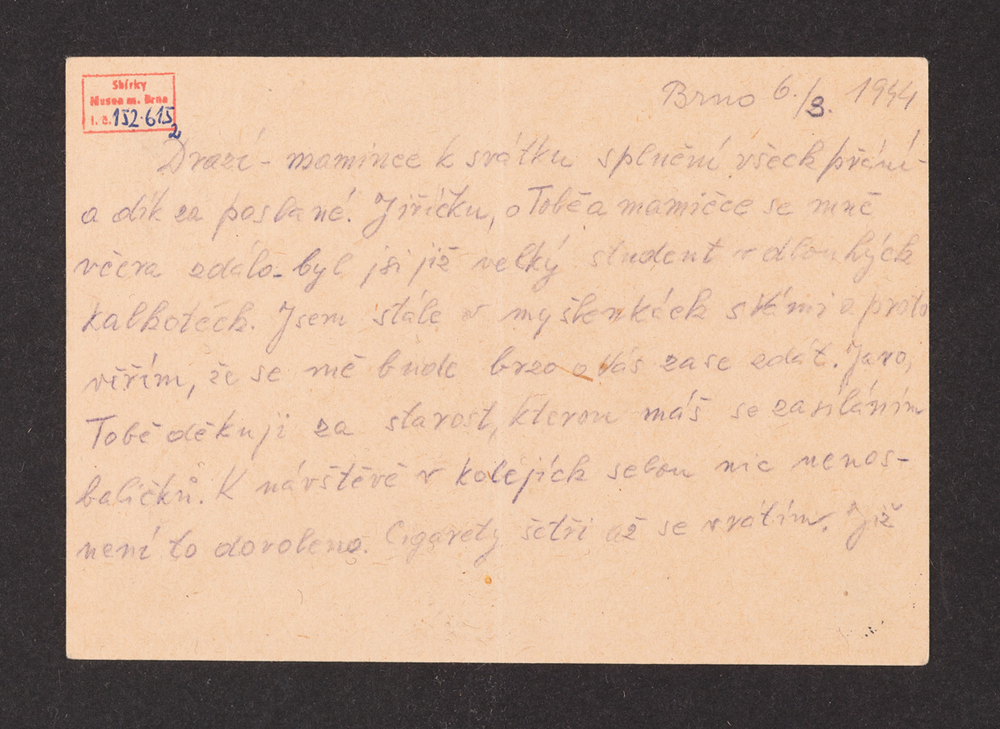 Sbírky
Musea m. Brna
i. č. 152.615
2
Brno 6./3. 1944
Drazí - mamince k svátku splnění všech přání -
a dík za poslané. Jiříčku, o Tobě a mamičce se mně
včera zdálo - byl jsi již velký student v dlouhých
kalhotech. Jsem stále v myšlenkách s Vámi a proto
věřím, že se mě bude brzo o Vás zase zdát. Jaro,
Tobě děkuji za starost, kterou máš se zasíláním
balíčků. K návštěvě v kolejích sebou nic nenos -
není to dovoleno. Cigarety šetři až se vrátím. Již